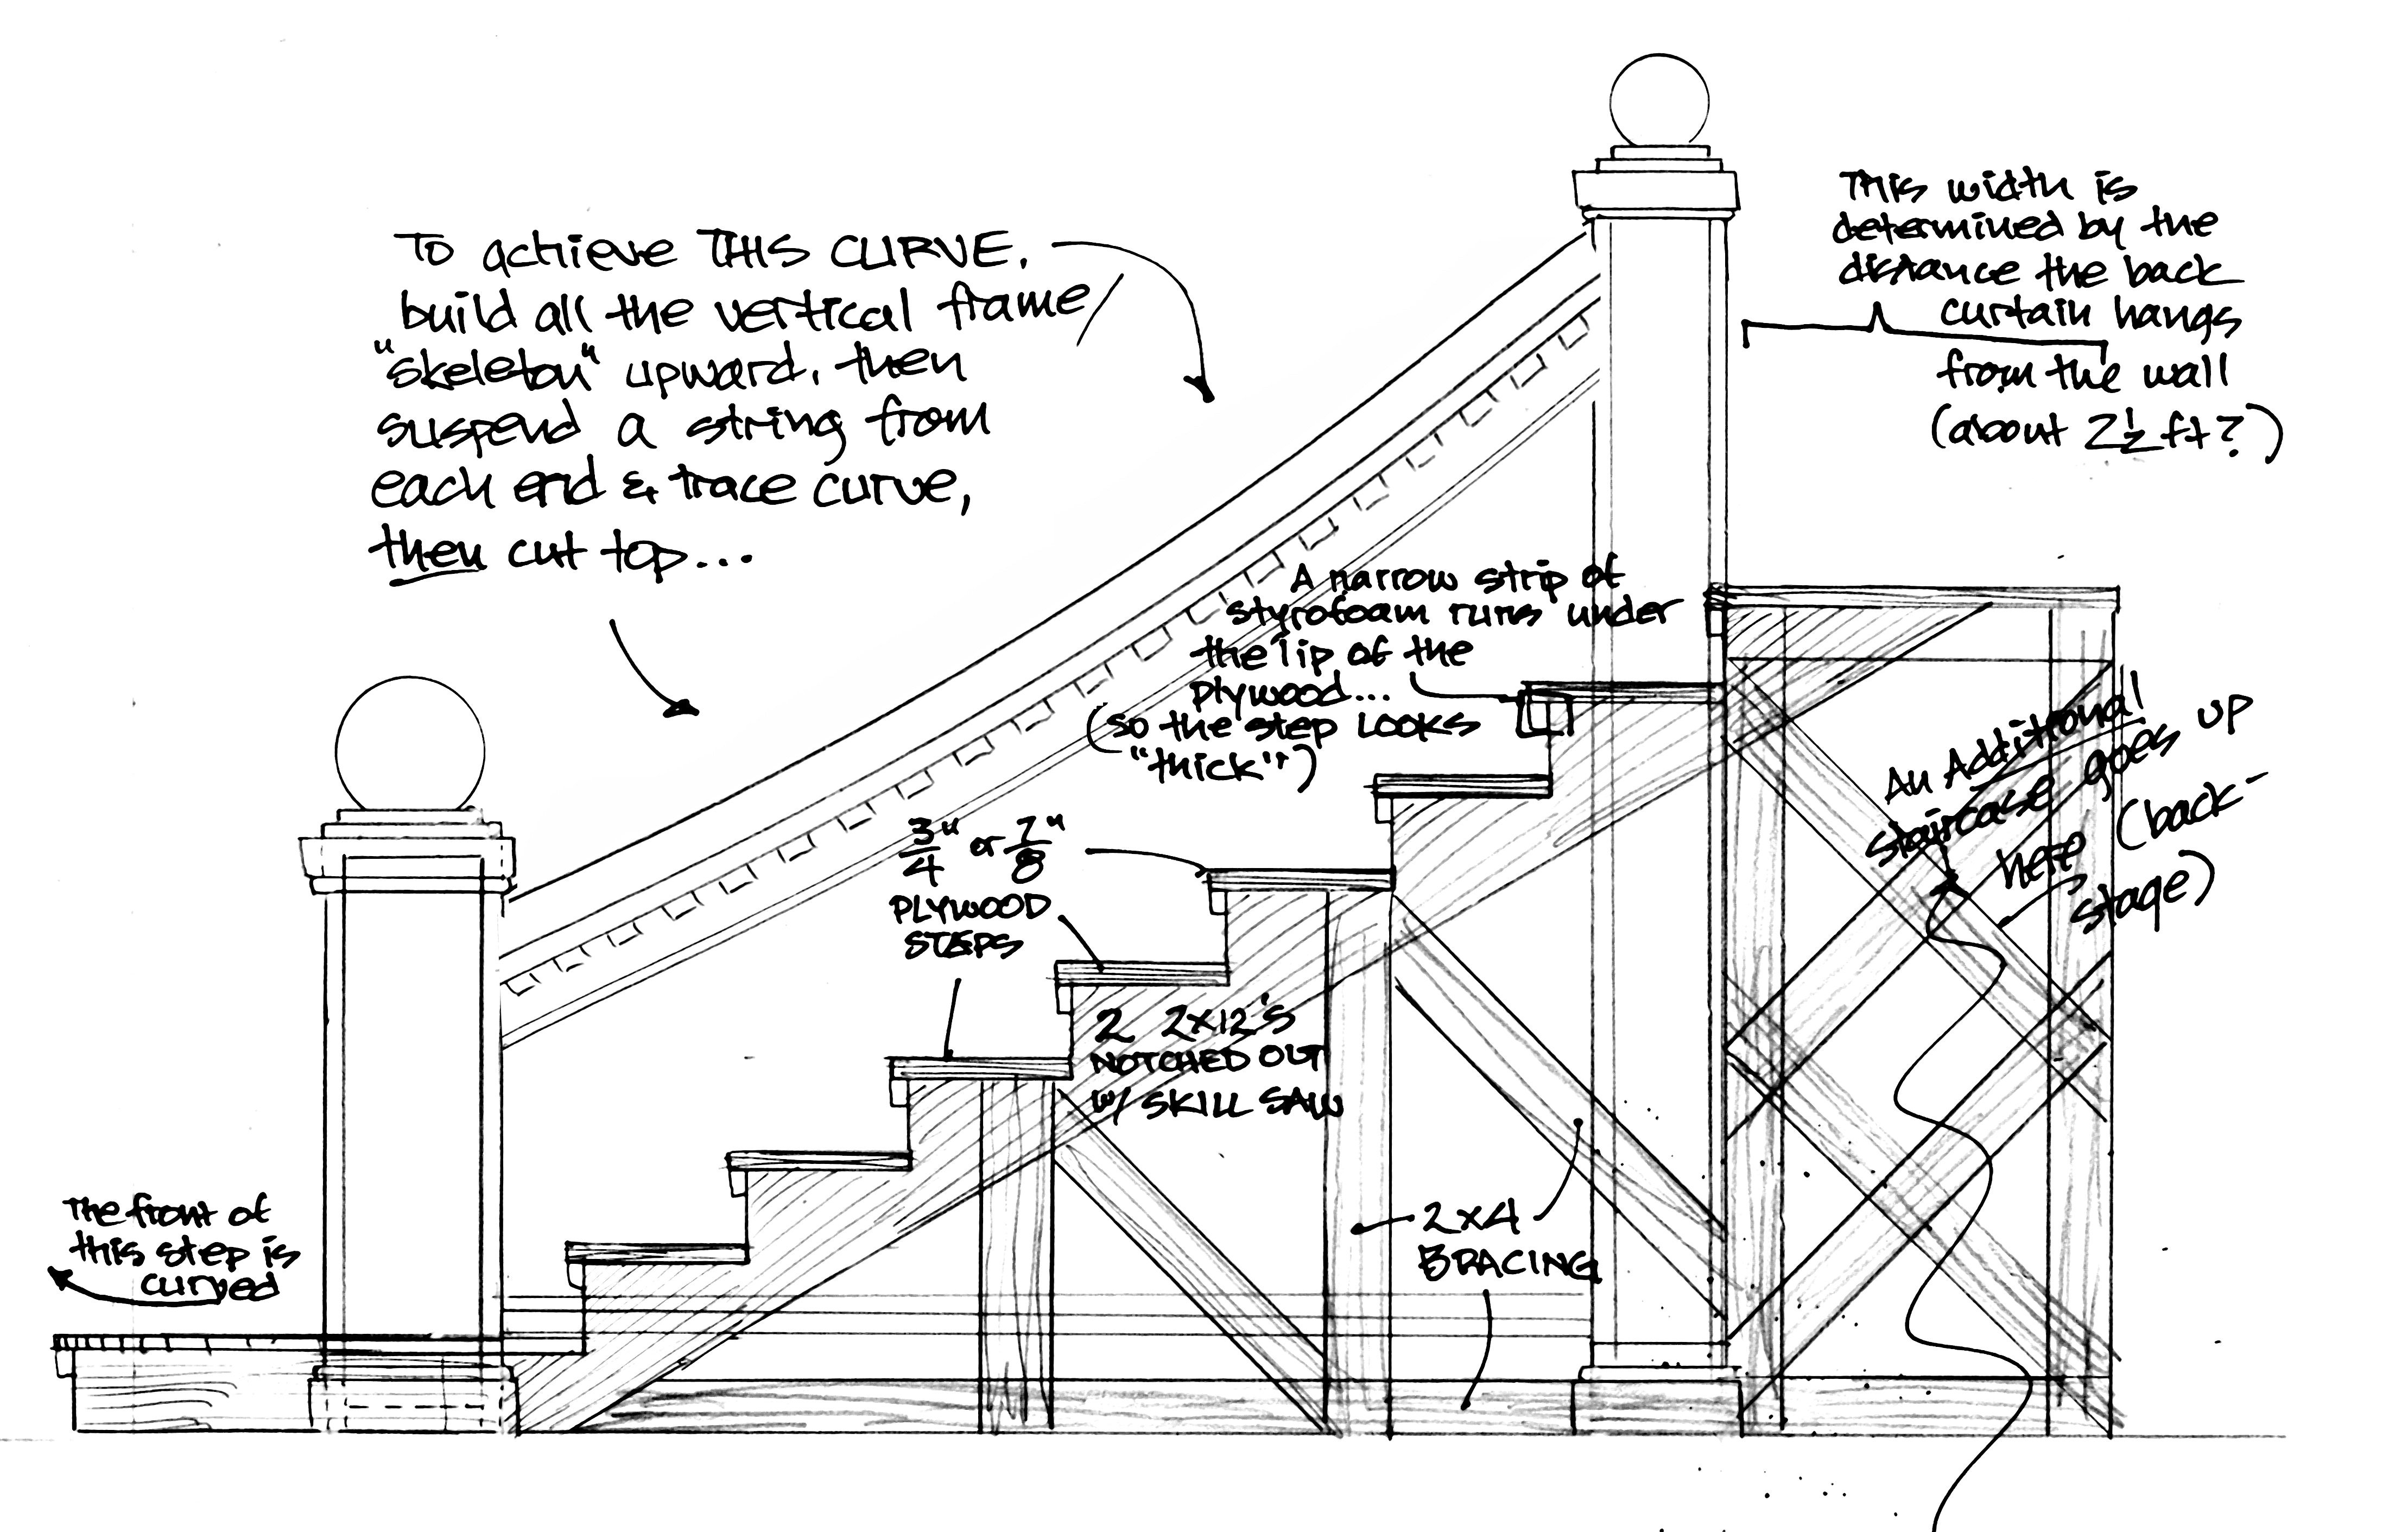 To achieve THIS CURVE,
build all the vertical frame
"skeleton" upward, then
suspend a string from
each end & trace curve,
then cut top...
This width is
determined by the
distance the back
curtain hangs
from the wall
(about 2½ ft?)
A narrow strip of
styrofoam runs under
the lip of the
plywood...
(so the step LOOKS
"thick")
An Additional
staircase goes up
here (back-
stage)
3/4" or 7/8"
PLYWOOD
STEPS
2 2x12's
NOTCHED OUT
w/ SKILL SAW
2x4
BRACING
The front of
this step is
curved